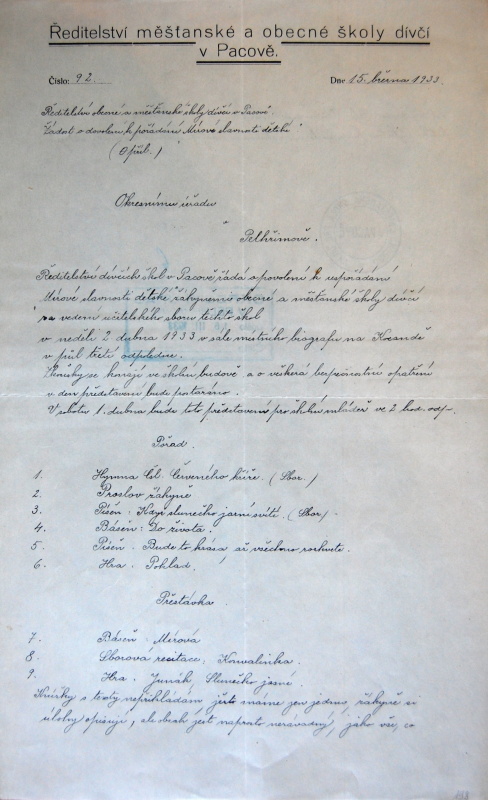 Ředitelství měšťanské a obecné školy dívčí
v Pacově.
Číslo: 92. Dne 15. března 1933.
Ředitelství obecné a měšťanské školy dívčí v Pacově.
Žádost o dovolení k pořádání Mírové slavnosti dětské
(0 příl.)
Okresnímu úřadu
v
Pelhřimově.
Ředitelství dívčích škol v Pacově žádá o povolení k uspořádání
Mírové slavnosti dětské žákyněmi obecné a měšťanské školy dívčí
za vedení učitelského sboru těchto škol
v neděli 2. dubna 1933 v sále místního biografu na
v půl třetí odpoledne.
Zkoušky se konají ve školní budově a o veškerá bezpečnostní opatření
v den představení bude postaráno.
V sobotu 1. dubna bude toto představení pro školní mládež ve 2 hod. odp.
Pořad.
1. Hymna Čsl. Červeného kříže. (Sbor.)
2. Proslov žákyně
3. Píseň: Když slunečko jarní svítí. (Sbor)
4. Báseň: Do života.
5. Píseň: Bude to krása, až všechno rozkvete.
6. Hra: Poklad.
Přestávka.
7. Báseň: Mírová
8. Sborová recitace: Kovalinka.
9. Hra: Junák Slunečko jasné.
s texty nepřikládám, ježto máme jen jedno, žákyně si
úlohy opisují, ale obsah jest naprosto nezávadný, jako vše, co